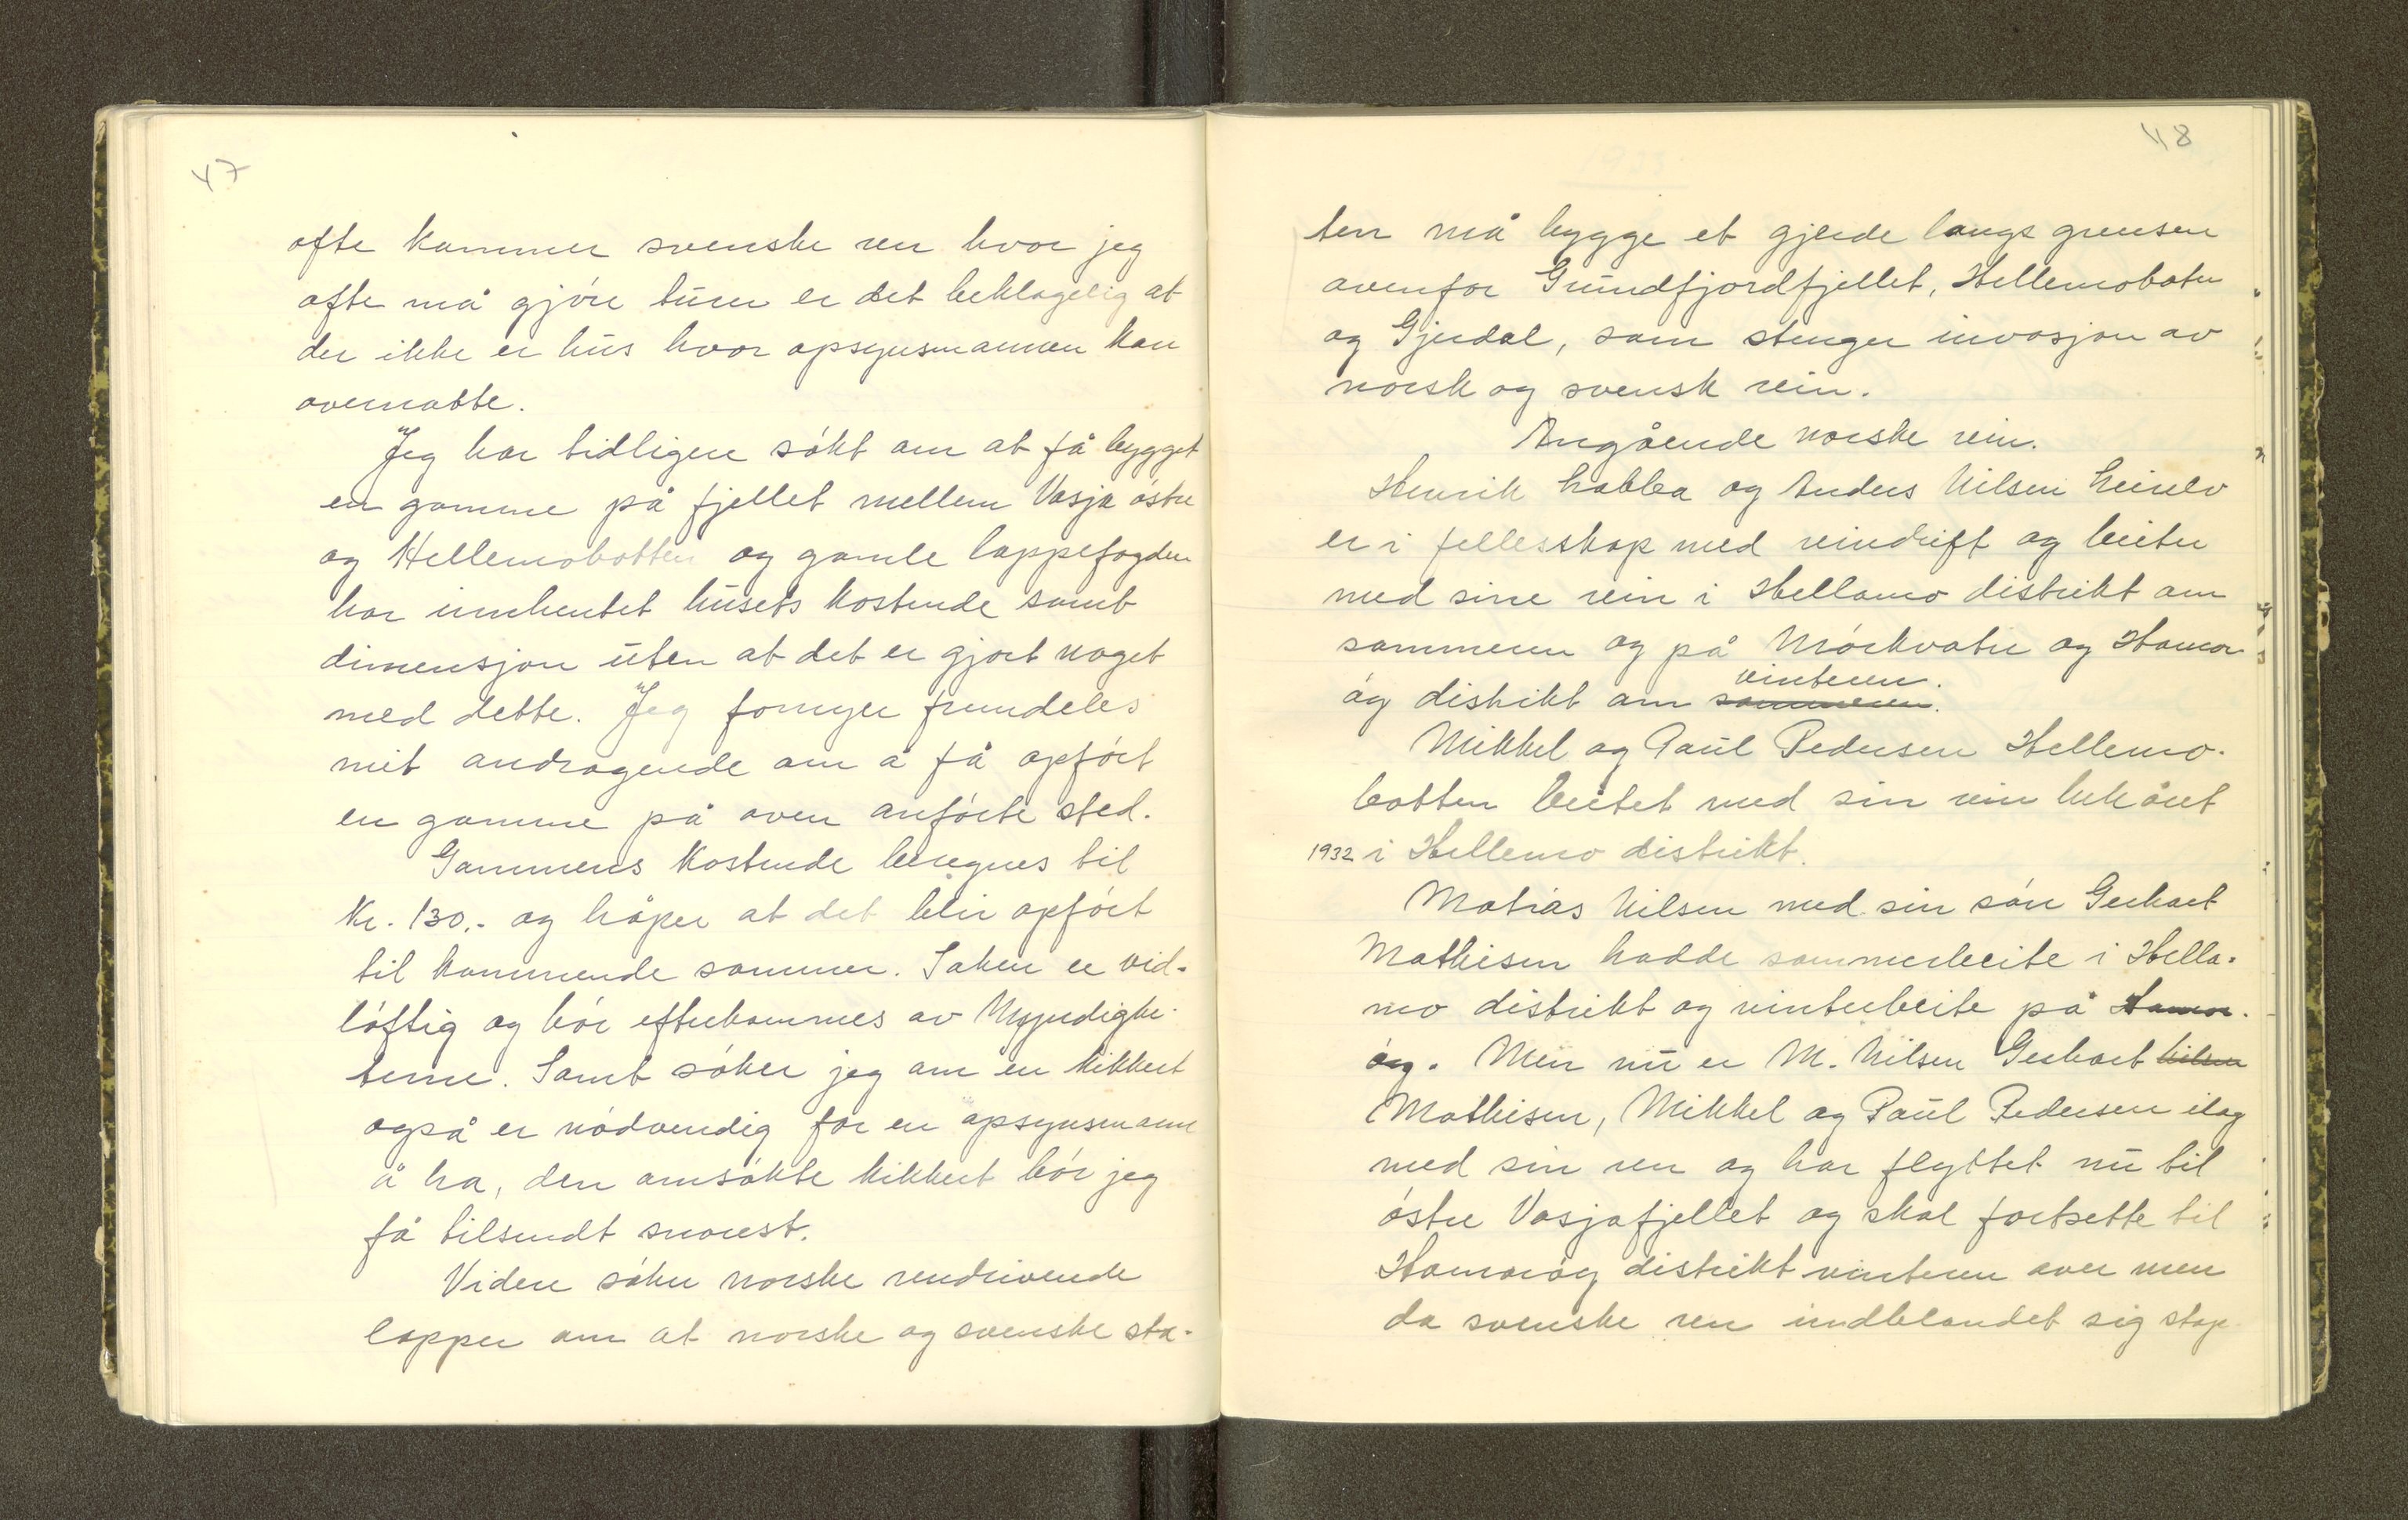 47
ofte kommer svenske ren hvor jeg
ofte må gjöre turer er det beklagelig at
der ikke er hus hvor opsynsmannen kan
overnatte.
Jeg har tidligere sökt om at få bygget
en gamme på fjellet mellem Vasja östre
og Hellemobotten og gamle lappefogden
har innhentet husets kostende samt
dimensjon uten at det er gjort noget
med dette. Jeg fornyer fremdeles
mit andragende om å få opfört
en gamme på oven anförte sted.
Gammens kostende beregnes til
Kr. 130.- og håper at det blir opfört
til kommende sommer. Saken er vid-
löftig og bör efterkommes av Myndighe-
terne. Samt söker jeg om en kikkert
også er nödvendig for en opsynsmann
å ha, den omsökte kikkert bör jeg
få tilsendt snarest.
Videre söker norske rendrivende
lapper om at norske og svenske sta-
48
ten må bygge et gjerde langs grensen
ovenfor Grundfjordfjellet, Hellemobotn
og Gjerdal, som stenger invasjon av
norsk og svensk rein.
Angående norske rein.
Henrik Labba og Anders Nilsen
er i fellesskap med reindrift og beiter
med sine rein i Hellamo distrikt om
sommeren og på Mörkvatn og Hamar
öy distrikt om sommeren. vinteren.
Mikkel og Paul Pedersen Hellemo-
botten beitet med sin rein hele året
1932 i Hellemo distrikt.
Matias Nilsen med sin sön Gerhart
Mathisen hadde sommerbeite i Hella-
mo distrikt og vinterbeite på Hamar-
öy. Men nu er M. Nilsen Gerhart Nilsen
Mathisen, Mikkel og Paul Pedersen ilag
med sin ren og har flyttet nu til
östre Vasjafjellet og skal fortsette til
Hamaröy distrikt vinteren over men
da svenske ren indblandet sig stop